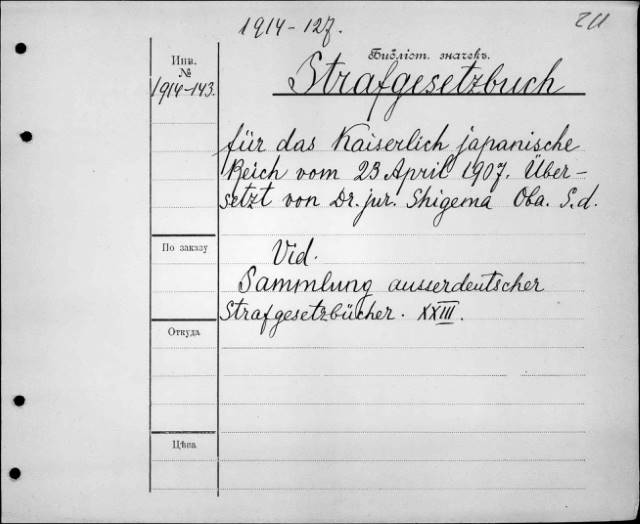 1914-127.
Инв.
№
1914-143.
Библіот. значекъ.
Strafgesetzbuch
für das Kaiserlich japanische
Reich vom 23 April 1907. Über-
setzt von Dr. jur. Shigema Oba. S.d.
По заказу
Vid.
Sammlung ausserdeutscher
Strafgesetzbücher. XXIII.
Откуда
Цѣна